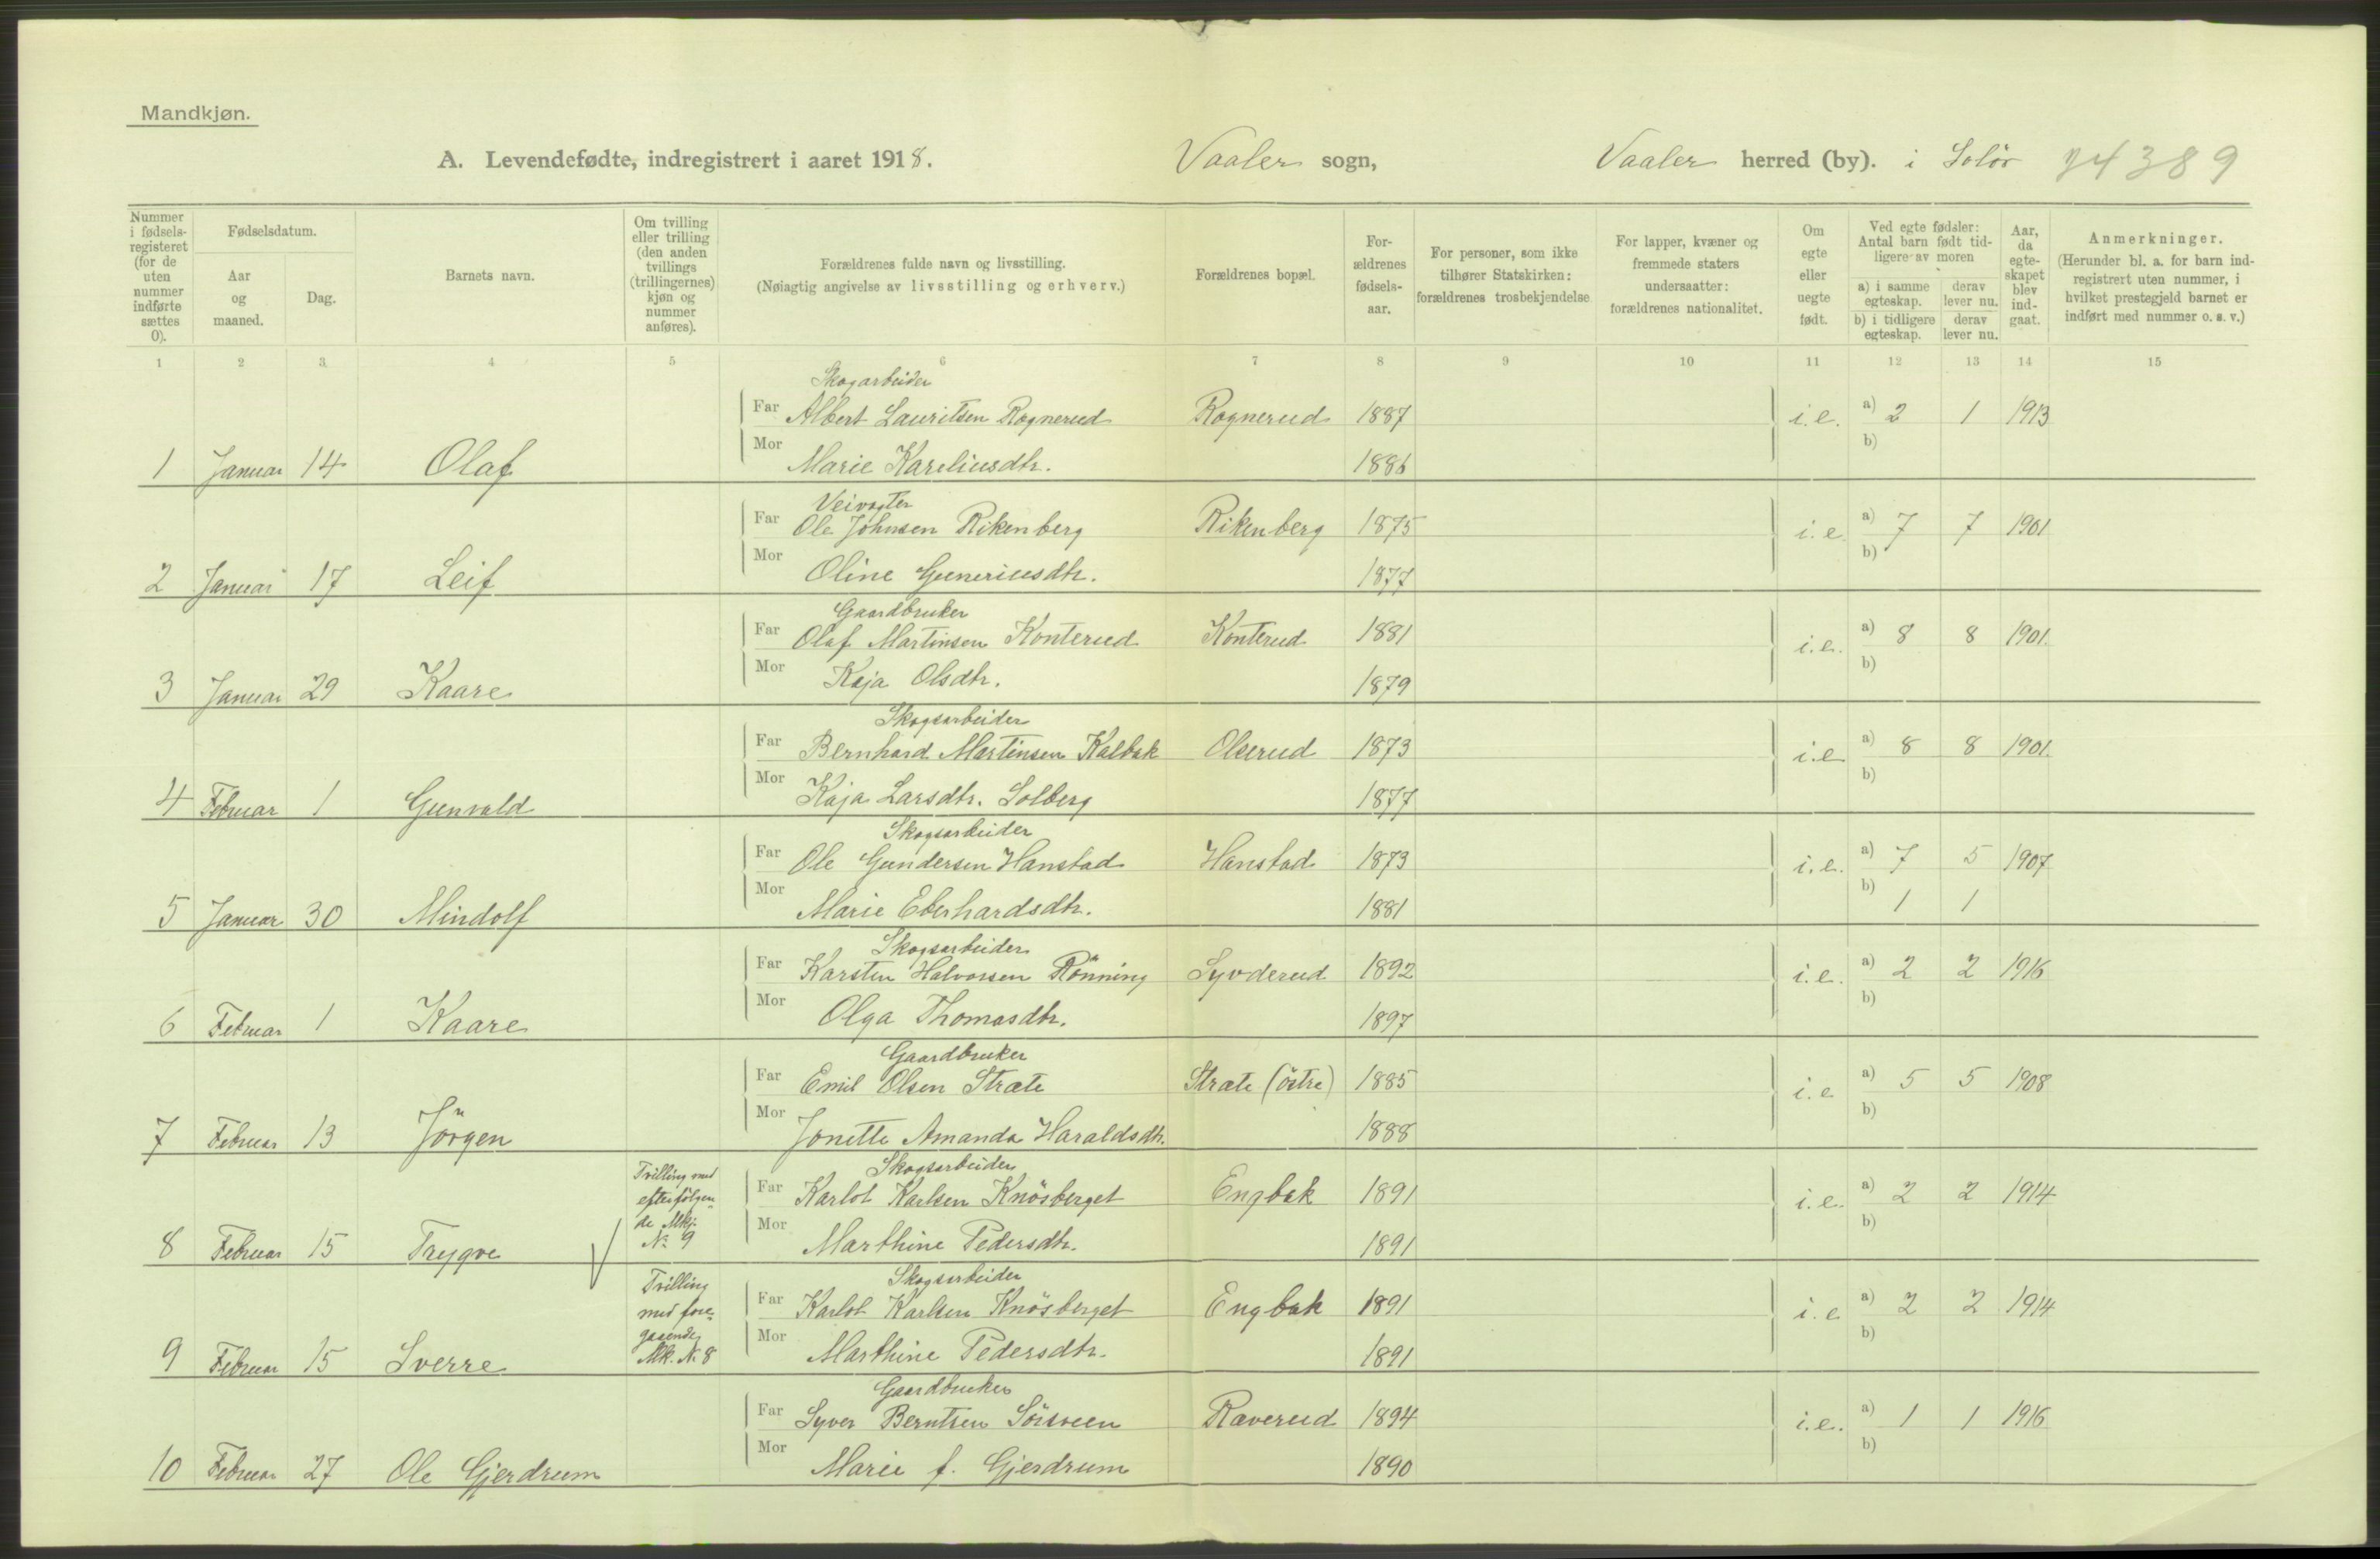 Mandkjøn.
A. Levendefødte, indregistrert i aaret 1918. Vaaler sogn, Vaaler herred (by). i Solör 74389
Nummer i fødsels-registeret (for de uten nummer indførte sættes 0).
Fødselsdatum.
Aar og maaned.
Dag.
Barnets navn.
Om tvilling eller trilling (den anden tvillings (trillingernes) kjøn og nummer anføres).
Forældrenes fulde navn og livsstilling.
(Nøiagtig angivelse av livsstilling og erhverv.)
Forældrenes bopæl.
For-ældrenes fødsels-aar.
For personer, som ikke tilhører Statskirken: forældrenes trosbekjendelse
For lapper, kvæner og fremmede staters undersaatter: forældrenes nationalitet.
Om egte eller uegte født.
Ved egte fødsler: Antal barn født tid-ligere av moren
a) i samme egteskap. derav lever nu.
b) i tidligere egteskap. derav lever nu.
Aar, da egte-skapet blev ind-gaat.
Anmerkninger.
(Herunder bl. a. for barn ind-registrert uten nummer, i hvilket prestegjeld barnet er indført med nummer o. s. v.)
1 2 3 4 5 6 7 8 9 10 11 12 13 14 15
Skogarbeider
Far Albert Lauritsen Rognerud Rognerud 1887 i.e. a) 2 1 1913
b)
1 Januar 14 Olaf Mor Marie Kareliusdtr. 1886
Veivogter
Far Ole Johnsen Rikenberg Rikenberg 1875 i.e. a) 7 7 1901
b)
2 Januar 17 Leif Mor Oline Guneriusdtr. 1877
Gaardbruker
Far Olaf Martinsen Konterud Konterud 1881 i.e. a) 8 8 1901.
b)
3 Januar 29 Kaare Mor Kaja Olsdtr. 1879
Skogsarbeider
Far Bernhard Martinsen Kalbak Olserud 1873 i.e. a) 8 8 1901.
b)
4 Februar 1 Gunvald Mor Kaja Larsdtr. Solberg 1877
Skogsarbeider
Far Ole Gundersen Hanstad Hanstad 1873 i.e. a) 7 5 1907
b) 1 1
5 Januar 30 Mindolf Mor Marie Eberhardsdtr. 1881
Skogsarbeider
Far Karsten Halvorsen Rönning Syvderud 1892 i.e. a) 2 2 1916
b)
6 Februar 1 Kaare Mor Olga Thomasdtr. 1897
Gaardbruker
Far Emil Olsen Stræte Stræte (östre) 1885 i.e a) 5 5 1908
b)
7 Februar 13 Jörgen Mor Jonette Amanda Haraldsdtr. 1888
Skogsarbeider
Tvilling med efterfölgen-de Mkj. N. 9
Far Karlot Karlsen Knösberget Engbak 1891 i.e. a) 2 2 1914
b)
8 Februar 15 Trygve Mor Marthine Pedersdtr. 1891
Skogsarbeider
Tvilling med fore-gaaende Mk. N. 8
Far Karlot Karlsen Knösberget Engbak 1891 i.e a) 2 2 1914
b)
9 Februar 15 Sverre Mor Marthine Pedersdtr. 1891
Gaardbruker
Far Syver Berntsen Sörsveen Raverud 1894 i.e. a) 1 1 1916
b)
10 Februar 27 Ole Gjerdrum Mor Marie f. Gjerdrum 1890